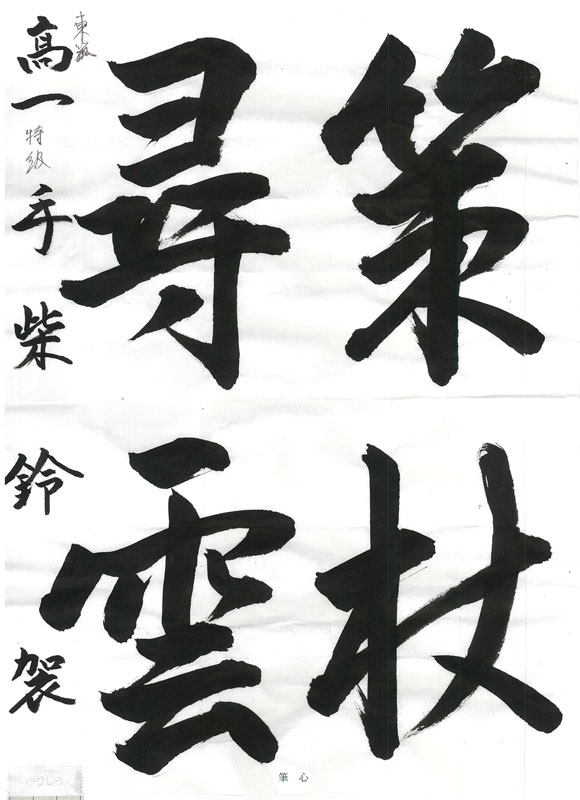 策杖
尋雲
高一 特級 手柴 鈴袈
筆心